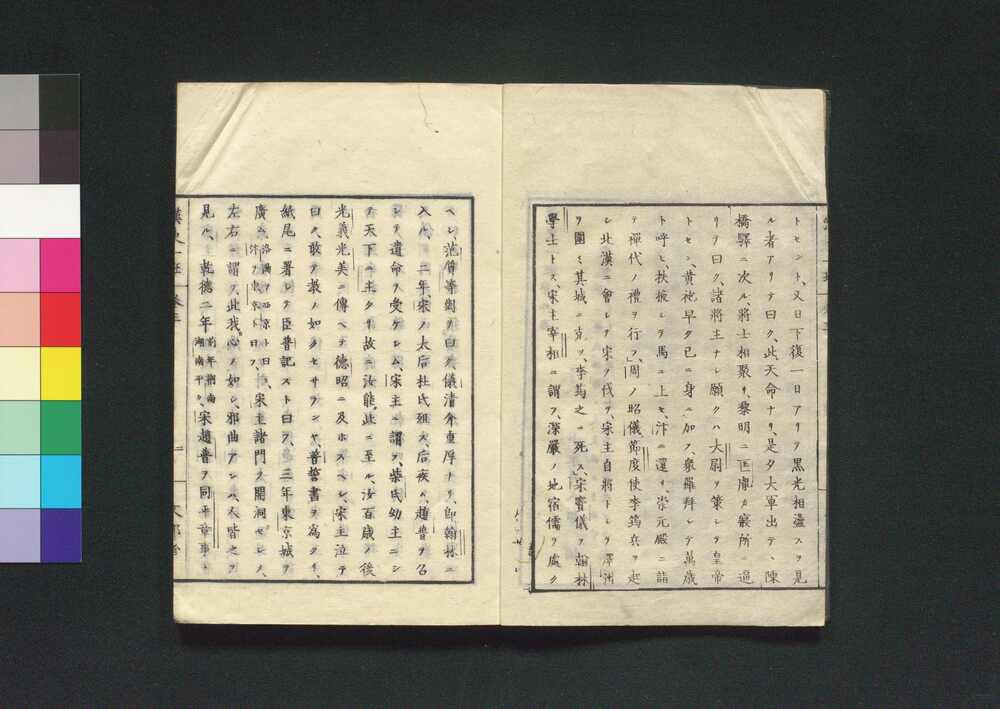 トセント、又日下復一日アリテ黒光相盪スヲ見
ル者アリテ曰ク、此天命ナリ、是夕大軍出テ、陳
橋驛ニ次ル、將士相聚リ、黎明ニ匡胤カ寢所ニ逼
リテ曰ク、諸將主ナシ願クハ大尉ヲ策シテ皇帝
トセン、黄袍早ク已ニ身ニ加フ、衆羅拜シテ萬歳
ト呼ヒ扶掖シテ馬ニ上セ、汴ニ還リ、崇元殿ニ詣
テ禪代ノ禮ヲ行フ、周ノ昭儀節度使李筠兵ヲ起
シ北漢ニ會シテ宋ヲ伐ツ、宋主自將トシテ澤洲
ヲ圍ミ其城ニ克ツ、李筠之ニ死ス、宋竇儀ヲ翰林
學士トス、宋主宰相ニ謂フ、深嚴ノ地宿儒ヲ處ク
ヘシ、范質等對ヲ曰ク、儀清介重厚ナリ、即翰林ニ
入ル、二年、宋ノ太后杜氏殂ス、后疾ム、趙普ヲ召
シテ遺命ヲ受ケシム、宋主ニ謂フ、柴氏幼主ニシ
テ天下ニ主タリ故ニ汝能此ニ至ル、汝百歳ノ後
光義光美ニ傳ヘテ德昭ニ及ホスヘシ、宋主泣テ
曰ク、敢テ教ノ如クセサランヤ、普誓書ヲ為クリ、
紙尾ニ署シテ臣普記スト曰フ、三年東京城ヲ
廣ム、洛陽ヲ西京ト曰ヒ、汴ヲ東京ト曰フ、宋主諸門ヲ開洞セシメ、
左右ニ謂フ、此我心ノ如シ、邪曲アシハ、人皆之ヲ
見ル、乾德二年 前年荊南湖南平ク、宋趙普ヲ同平章事ト
漢史一班 巻三 二 文部省